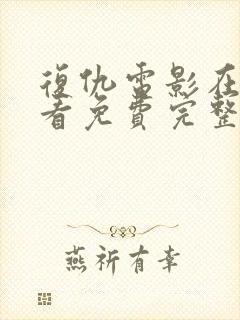 復仇電影在
看免費完整
燕祈有幸